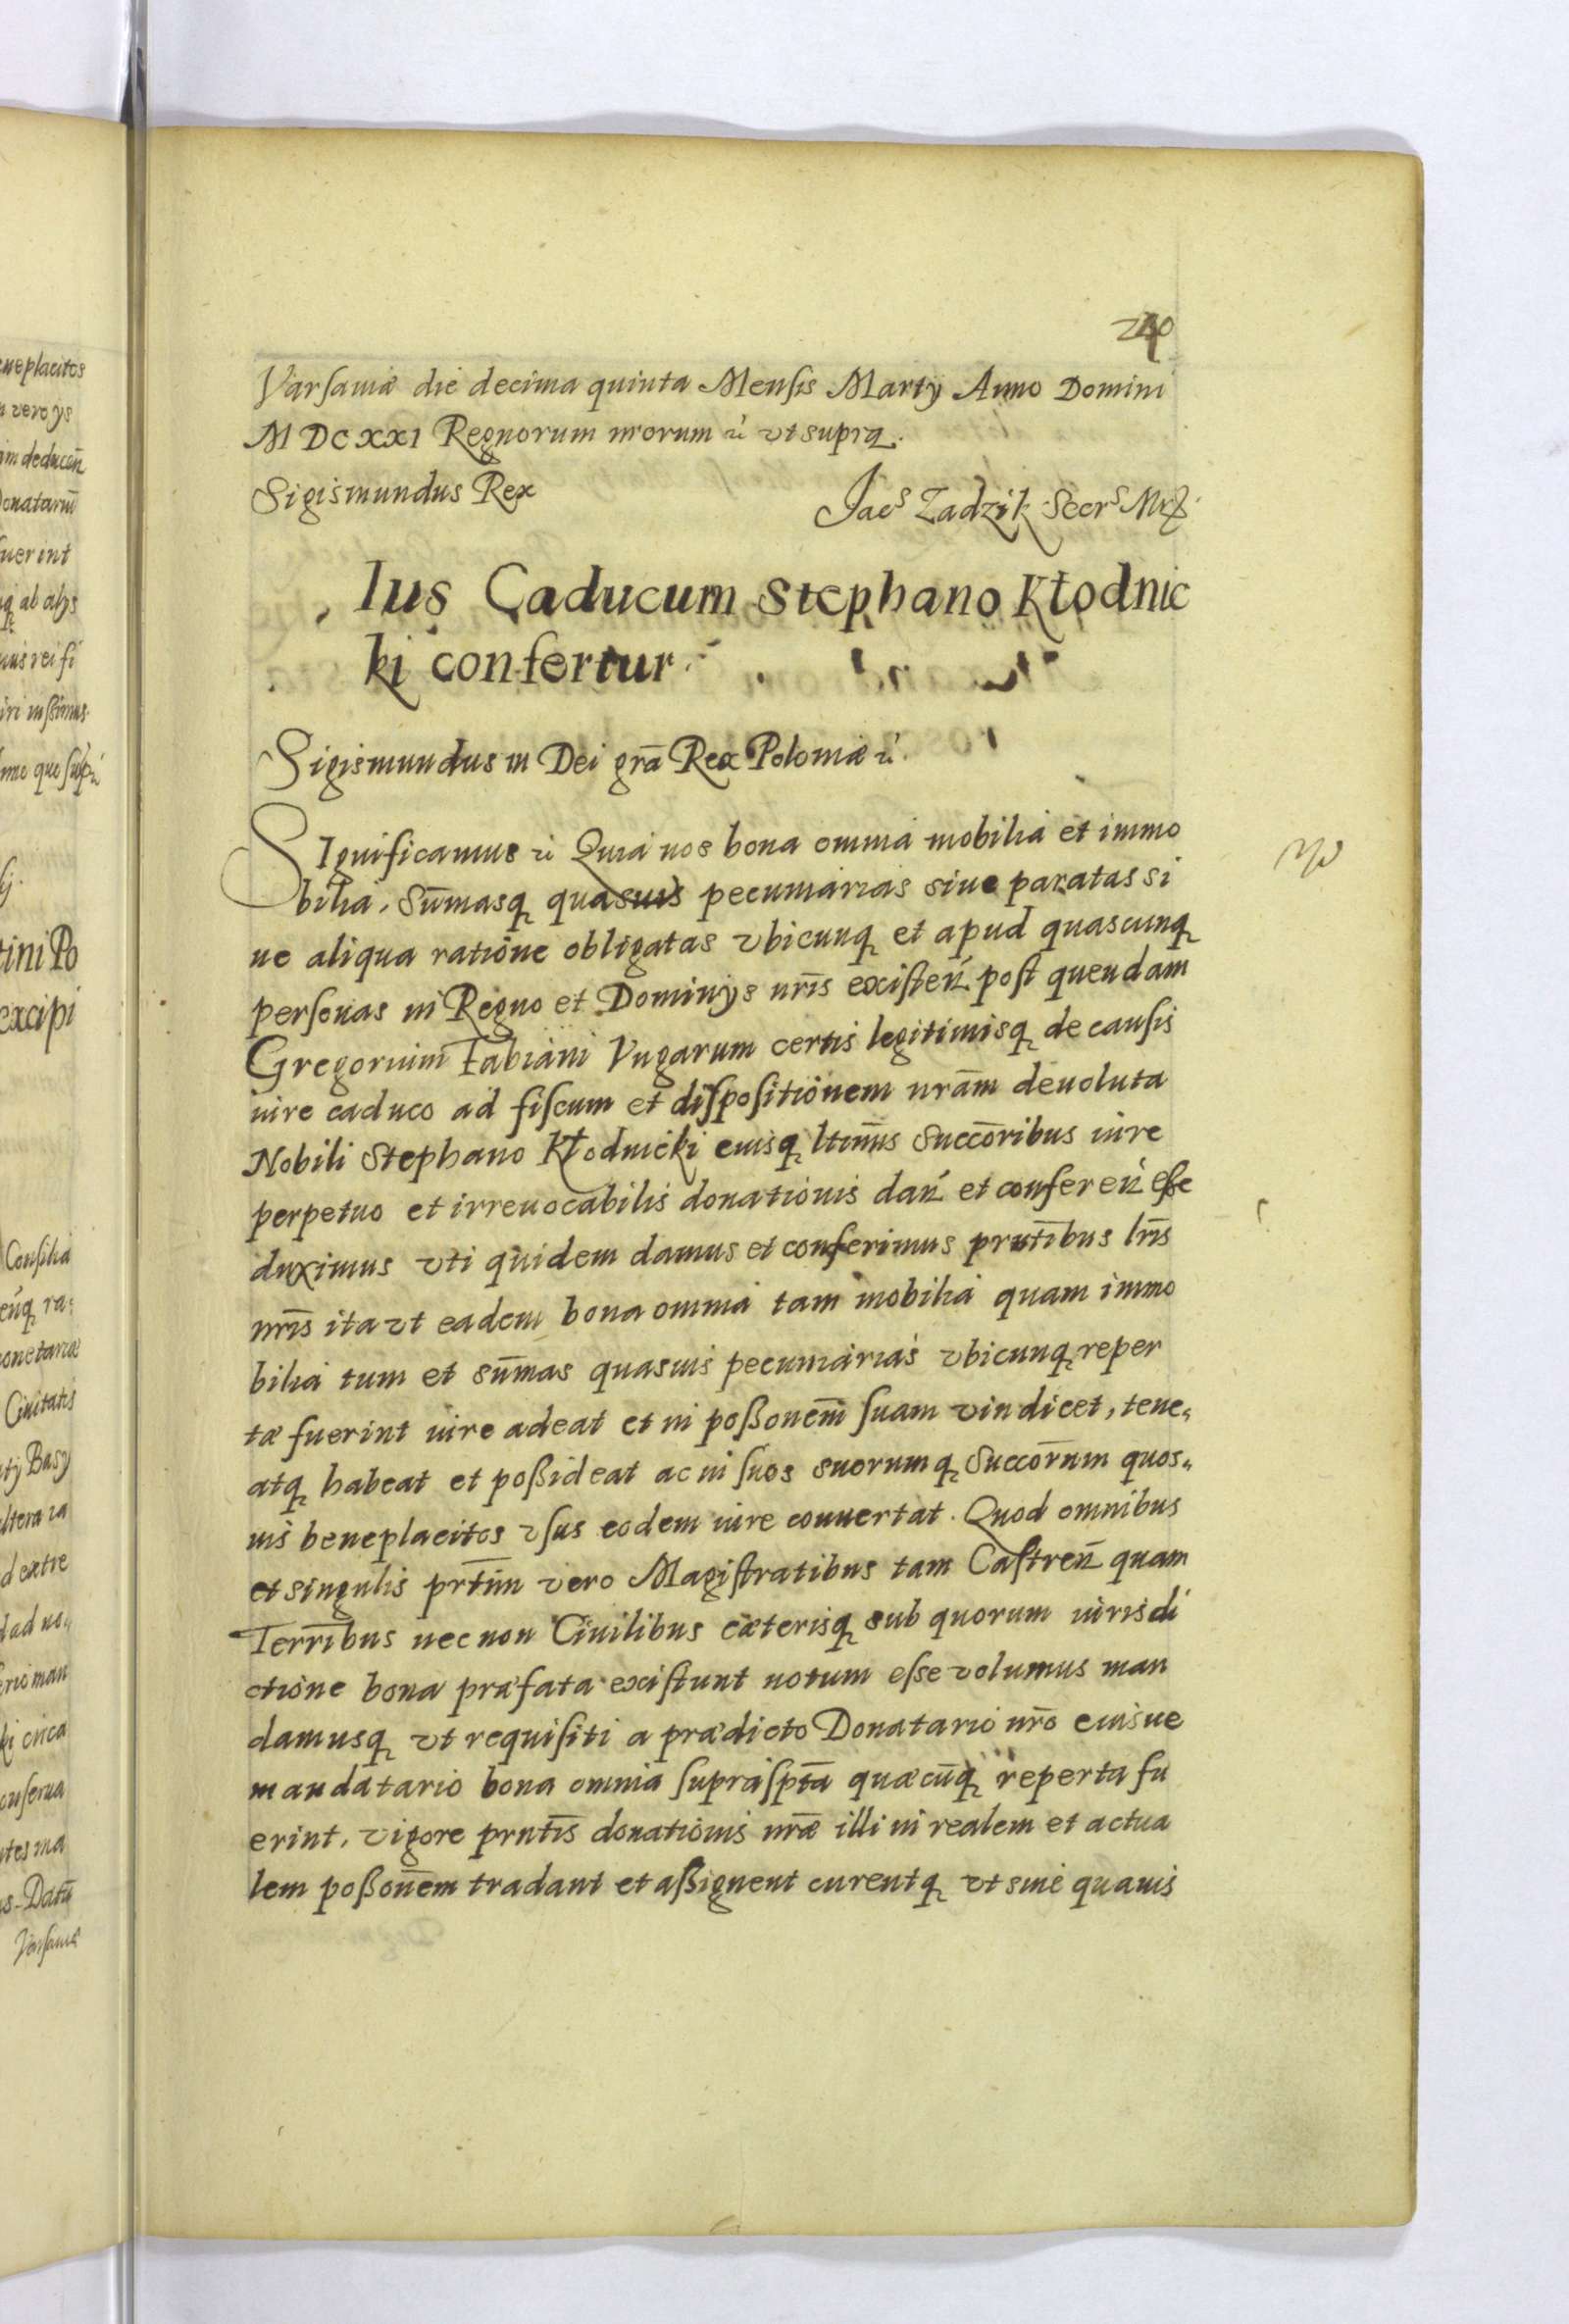 240
Varsaviæ die decima quinta Mensis Martÿ Anno Domini
M DC XXI Regnorum nrorum ut supra.
Sigismundus Rex
Jacs Zadzik Secrs Mr
Ius Caducum Stephano Kłodnic
ki confertur
Sigismundus III Dei grā Rex Poloniæ
SIgnificamus Quia nos bona omnia mobilia et immo
bilia, Sūmasq quasuis pecuniarias siue paratas si
ue aliqua ratione obligatas vbicunq et apud quascunq
personas in Regno et Dominÿs nrīs existeñ post quendam
Gregorium Fabiani Vngarum certis legitimisq de causis
iure caduco ad fiscum et dispositionem nrām deuoluta
Nobili Stephano Kłodnicki eiusq ltimīs Succōribus iure
perpetuo et irreuocabilis donationis dañ et confereñ esse
duximus vti quidem damus et conferimus prntībus lrīs
nrīs ita vt eadem bona omnia tam mobilia quam immo
bilia tum et sūmas quasuis pecuniarias vbicunq reper
tæ fuerint iure adeat et in poßonem̄ suam vindicet, tene„
atq habeat et poßideat ac in suos suorumq Succōrum quos„
uis beneplacitos vsus eodem iure conuertat. Quod omnibus
et singulis prtīm vero Magistratibus tam Castreñ quam
Terrībus necnon Ciuilibus cæterisq sub quorum iurisdi
ctione bona præfata existunt notum esse volumus man
damusq vt requisiti a prædicto Donatario nrō eiusue
mandatario bona omnia suprasptā quæcūq reperta fu
erint, vigore prntīs donationis nrāe illi in realem et actua
lem poßonēm tradant et aßignent curentq vt sine quauis